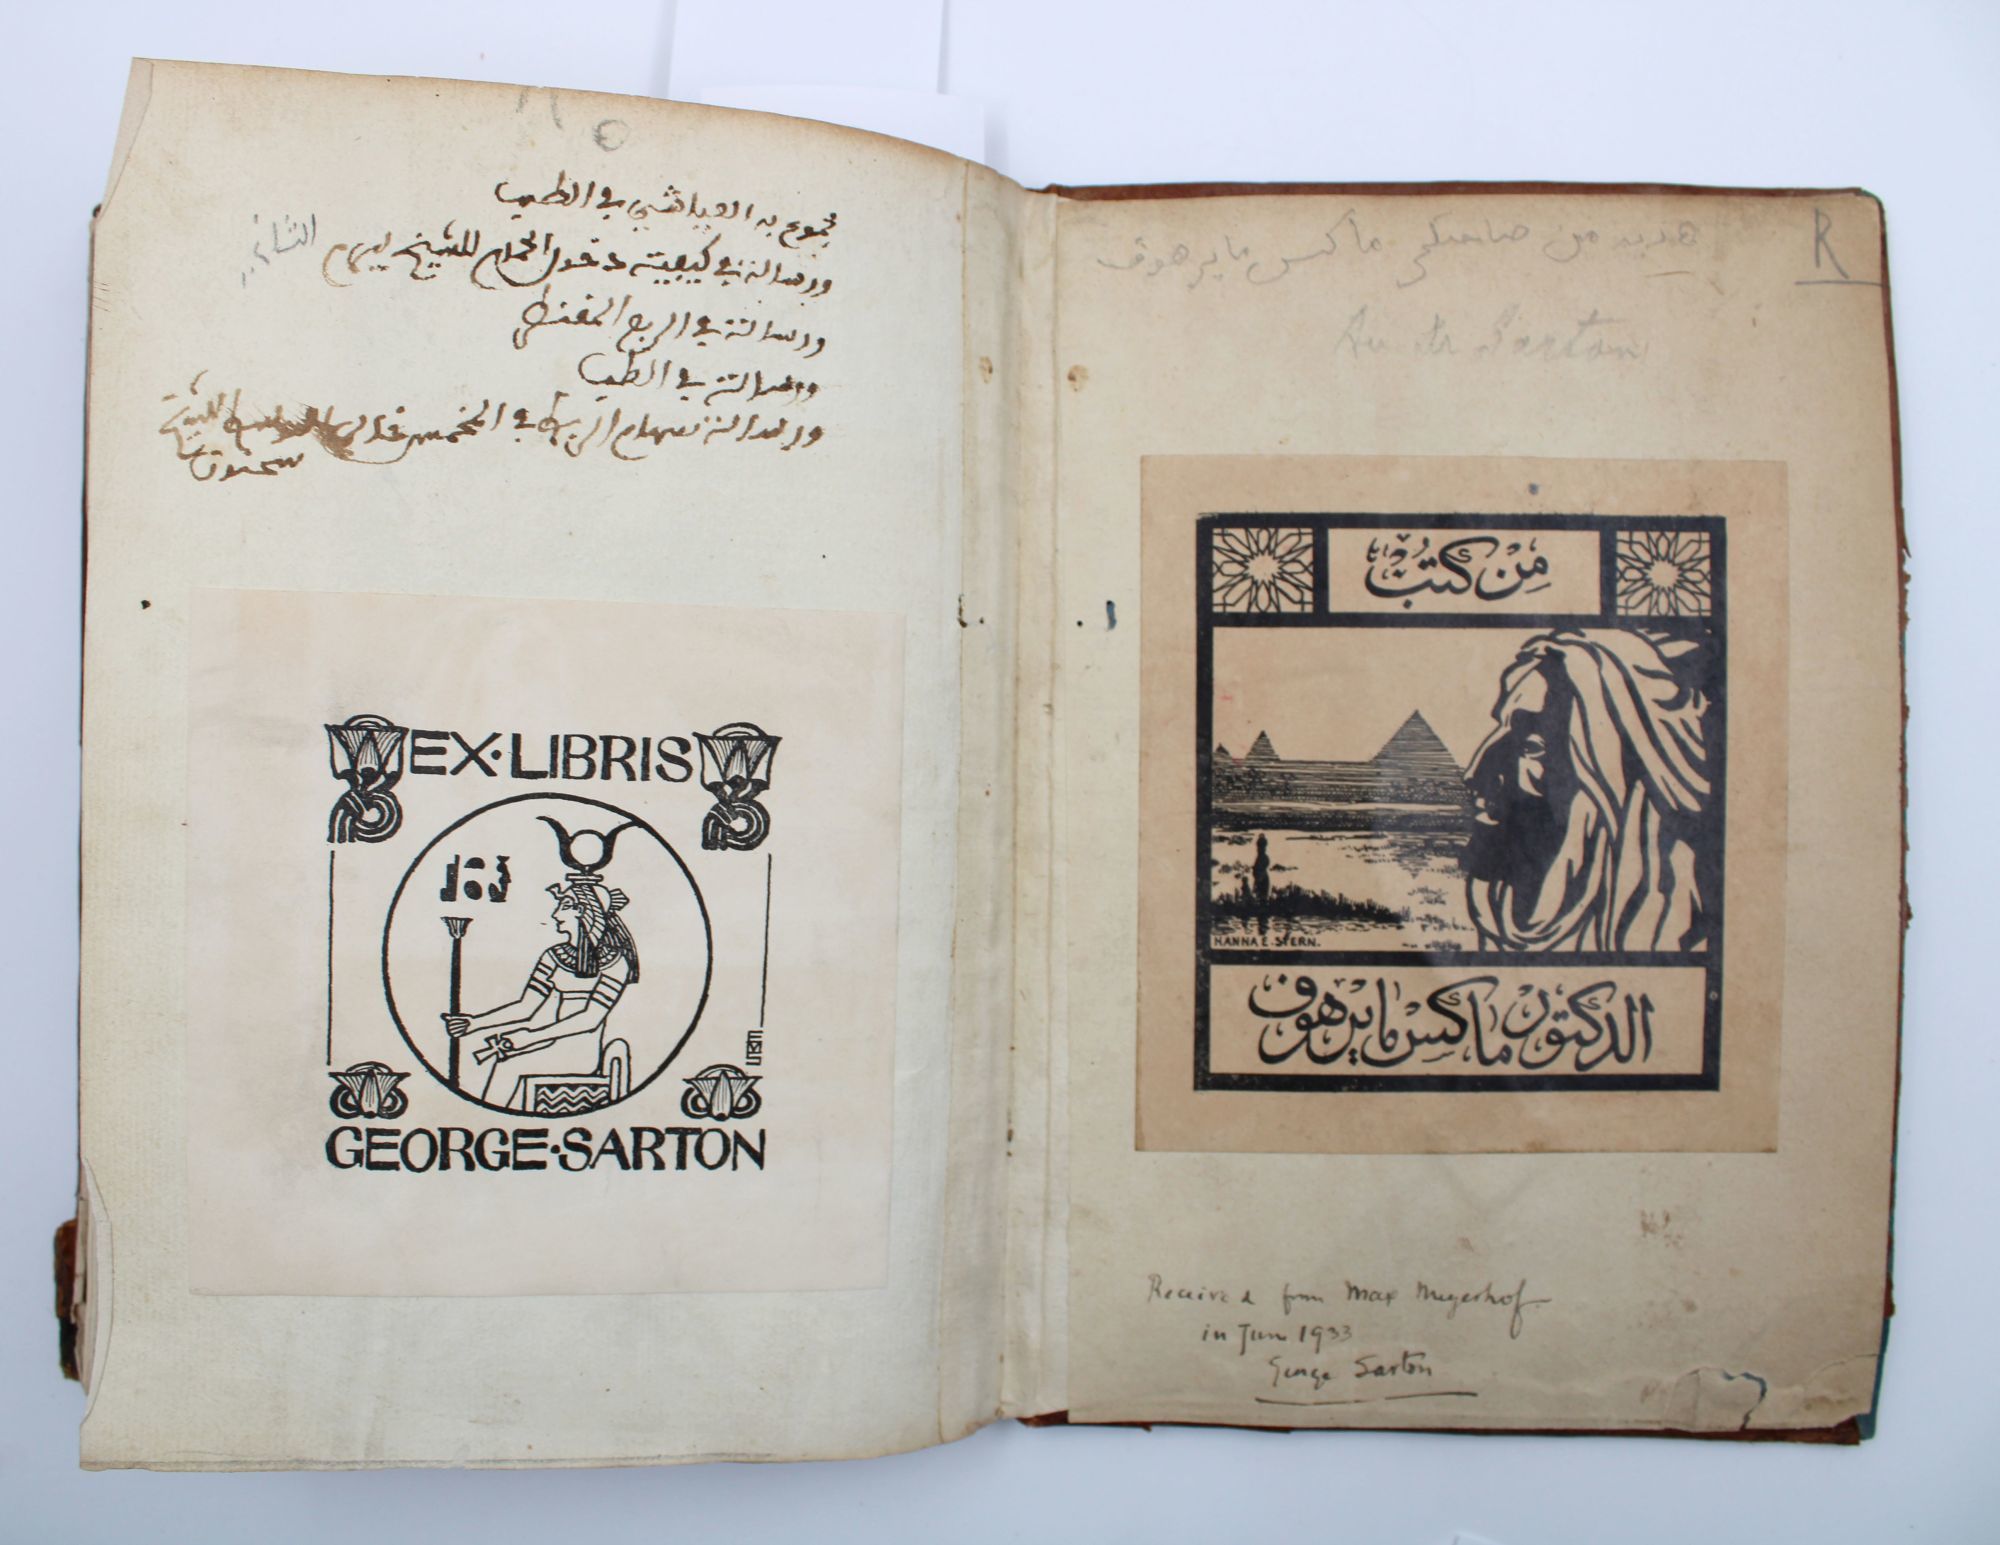 مجموع به العياشي في الطب
ورسالة في كيفية دخول الحمام للشيخ
ورسالة في الربع المقنطر
ورسالة في الطب
ورسالة سهام الربط في المخمس خالي
سحنون
EX·LIBRIS
GEORGE·SARTON
R
هدية من ماكس مايرهوف
Sarton
مِنْ كتُبْ
HANNA E. STERN.
الدكتور ماكس مايرهوف
Received from Max Meyerhof
in June 1933
George Sarton